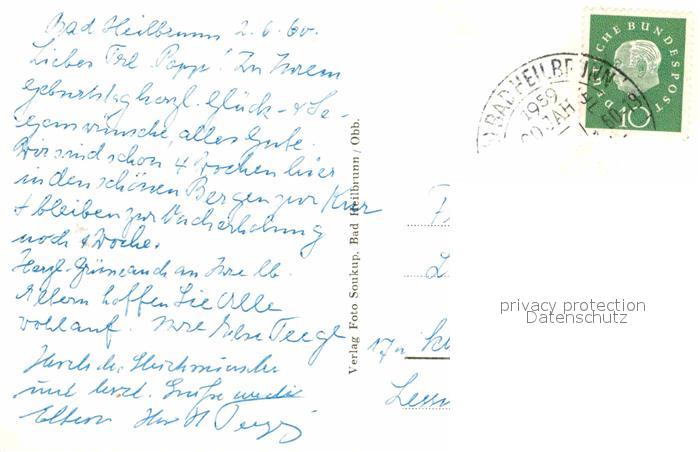 Bad Heilbrunn 2.6.60.
Liebes Frl. Popp! Zu Ihrem
Geburtstag herzl. Glück- + Se-
genswünsche, alles Gute.
Wir sind schon 4 Wochen hier
in den schönen Bergen zur Kur
+ bleiben zur Nacherholung
noch 1 Woche.
Herzl. Grüße auch an Ihre lb.
Eltern hoffen Sie Alle
wohlauf. Ihre
Herzliche Glückwünsche
und herzl. Grüße an die
Eltern Ihr H
Verlag Foto Soukup, Bad Heilbrunn / Obb.
BAD HEILBRUNN
1959
CHE BUNDESPOST
10
privacy protection
Datenschutz
17a